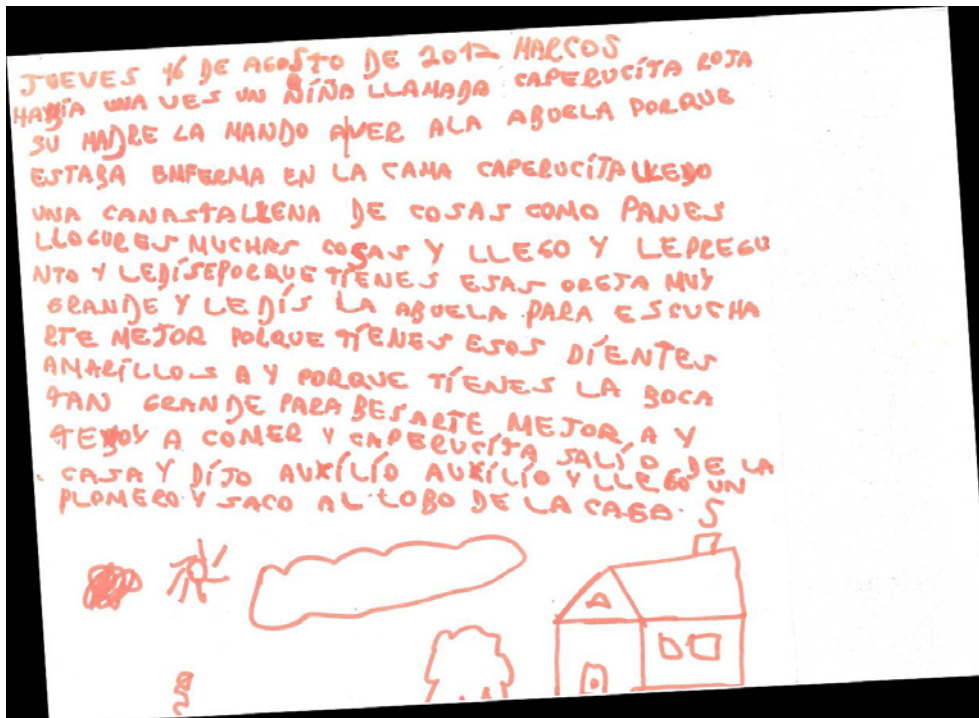 JUEVES 16 DE AGOSTO DE 2012 MARCOS
HABÍA UNA VES UN NIÑA LLAMADA CAPERUCITA ROJA
SU MADRE LA MANDO AVER ALA ABUELA PORQUE
ESTABA ENFERMA EN LA CAMA CAPERUCÍTA LLEBO
UNA CANASTA LLENA DE COSAS COMO PANES
LLOGURES MUCHAS COSAS Y LLEGO Y LEPREGU
NTO Y LEDÍSEPORQUE TÍENES ESAS OREJA MUY
GRANDE Y LE DÍS LA ABUELA PARA ESCUCHA
RTE MEJOR PORQUE TÍENES ESOS DÍENTES
AMARÍLLOS A Y PORQUE TÍENES LA BOCA
TAN GRANDE PARA BESARTE MEJOR A Y
TE VOY A COMER Y CAPERUCÍTA SALÍO DE LA
CASA Y DÍJO AUXÍLÍO AUXÍLÍO Y LLEGO UN
PLOMERO Y SACO AL LOBO DE LA CASA.